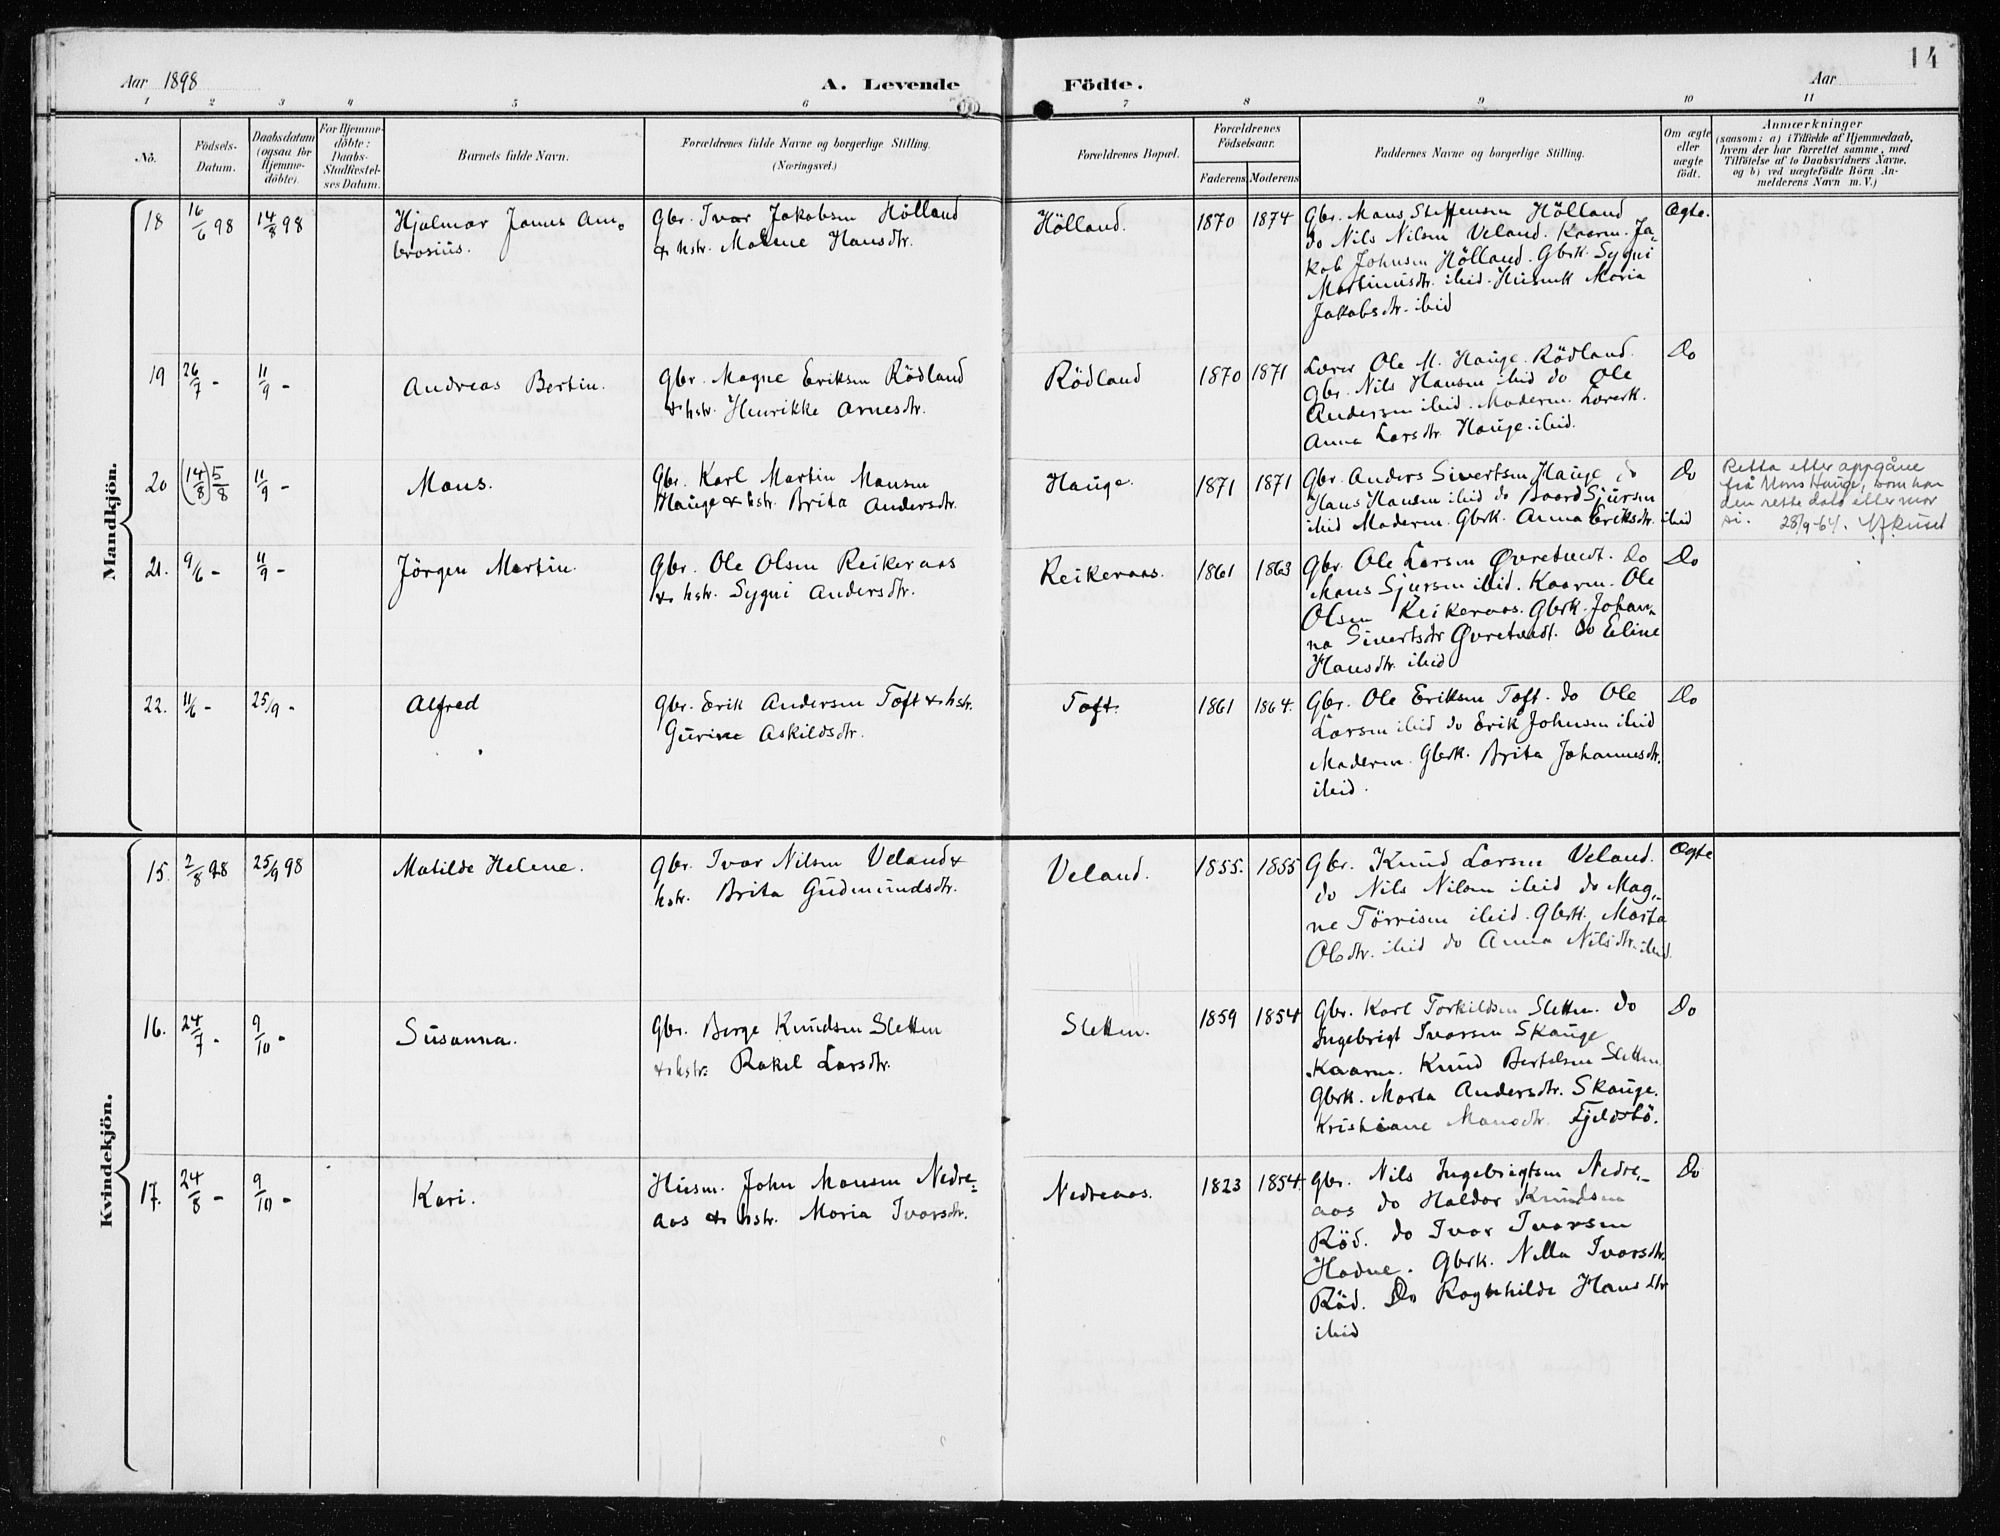 14
Aar 1898
A. Levende Födte.
Aar
1 2 3 4 5 6 7 8 9 10 11
No.
Födsels-
Datum.
Daabsdatum
(ogsaa for
Hjemme-
döbte).
For Hjemme-
döbte:
Daabs-
Stadfæstel-
ses Datum.
Barnets fulde Navn.
Forældrenes fulde Navne og borgerlige Stilling.
(Næringsvei.)
Forældrenes Bopæl.
Forældrenes
Födselsaar.
Faderens
Moderens
Faddernes Navne og borgerlige Stilling.
Om ægte
eller
uægte
födt.
Anmærkninger
(saasom: a) i Tilfælde af Hjemmedaab,
hvem der har forrettet samme, med
Tilföielse af to Daabsvidners Navne,
og b) ved uægtefödte Börn An-
melderens Navn m. V.)
Mandkjön.
18 16/6 98 14/8 98
Hjalmar Jonus Am-
brosius.
Gbr. Ivar Jakobsen Hölland
& hstr. Malene Hansdtr.
Hölland. 1870 1874
Gbr. Mons Steffensen Hölland
do Nils Nilsen Veland. Kaarm. Ja-
kob Johnsen Hölland. Gbrk. Sygni
Martinusdtr. ibid. Husmk Maria
Jakobsdtr. ibid
Ægte.
19 26/7 - 11/9 -
Andreas Bertin.
Gbr. Magne Eriksen Rödland
& hstr. Henrikke Arnesdtr.
Rödland 1870 1871
Lærer Ole M. Hauge. Rödland.
Gbr. Nils Hansen ibid do Ole
Andersen ibid. Moderen. Lærerk.
Anna Larsdtr. Hauge. ibid.
Do
20 (14/8) 5/8 11/9 -
Mons.
Gbr. Karl Martin Monsen
Hauge & hstr. Brita Andersdtr.
Hauge. 1871 1871
Gbr. Anders Sivertsen Hauge do
Hans Hansen ibid do Baard Sjursen
ibid Moderen. Gbrk. Anna Eriksdtr. ibid
Do
Retta etter oppgåve
frå Mons Hauge, som har
den rette dato etter mor
si. 28/9-64.
21. 9/6 - 11/9 -
Jörgen Martin.
Gbr. Ole Olsen Reikeraas
& hstr. Sygni Andersdtr.
Reikeraas. 1861 1863
Gbr. Ole Larsen Øvretvedt. do
Mons Sjursen ibid. Kaarm. Ole
Olsen Reikeraas. Gbrk. Johan-
na Sivertsdtr Øvretvedt. do Eline
Hansdtr. ibid
Do
22. 11/6 - 25/9 -
Alfred
Gbr. Erik Andersen Toft & hstr.
Gurine Askildsdtr.
Toft. 1861 1864.
Gbr. Ole Eriksen Toft. do Ole
Larsen ibid do Erik Johnsen ibid
Moderen. Gbrk. Brita Johannesdtr.
ibid.
Do
Kvindekjön.
15. 2/8 98 25/9 98
Matilde Helene.
Gbr. Ivar Nilsen Veland &
hstr. Brita Gudmundsdtr.
Veland. 1855. 1855
Gbr. Knud Larsen Veland.
do Nils Nilsen ibid do Mag-
ne Törrisen ibid. Gbrk. Marta
Olsdtr. ibid do Anna Nilsdtr. ibid.
Ægte
16. 24/7 - 9/10 -
Susanna.
Gbr. Berge Knudsen Sletten
& hstr: Rakel Larsdtr.
Sletten. 1859 1854
Gbr. Karl Torkildsen Sletten. do
Ingebrigt Ivarsen Skauge
Kaarm. Knud Bertelsen Sletten
Gbrk. Marta Andersdtr. Skauge.
Kristiane Monsdtr. Fjeldsbö.
Do
17. 24/8 - 9/10 -
Kari.
Husm. John Monsen Nedre-
aas & hstr. Maria Ivarsdtr.
Nedreaas. 1823 1854.
Gbr. Nils Ingebrigtsen Nedre-
aas do Haldor Knudsen
Röd. do Ivar Ivarsen
Hadne. Gbrk. Nilla Ivarsdtr.
Röd. Do Ragnhilde Hansdtr
ibid
Do